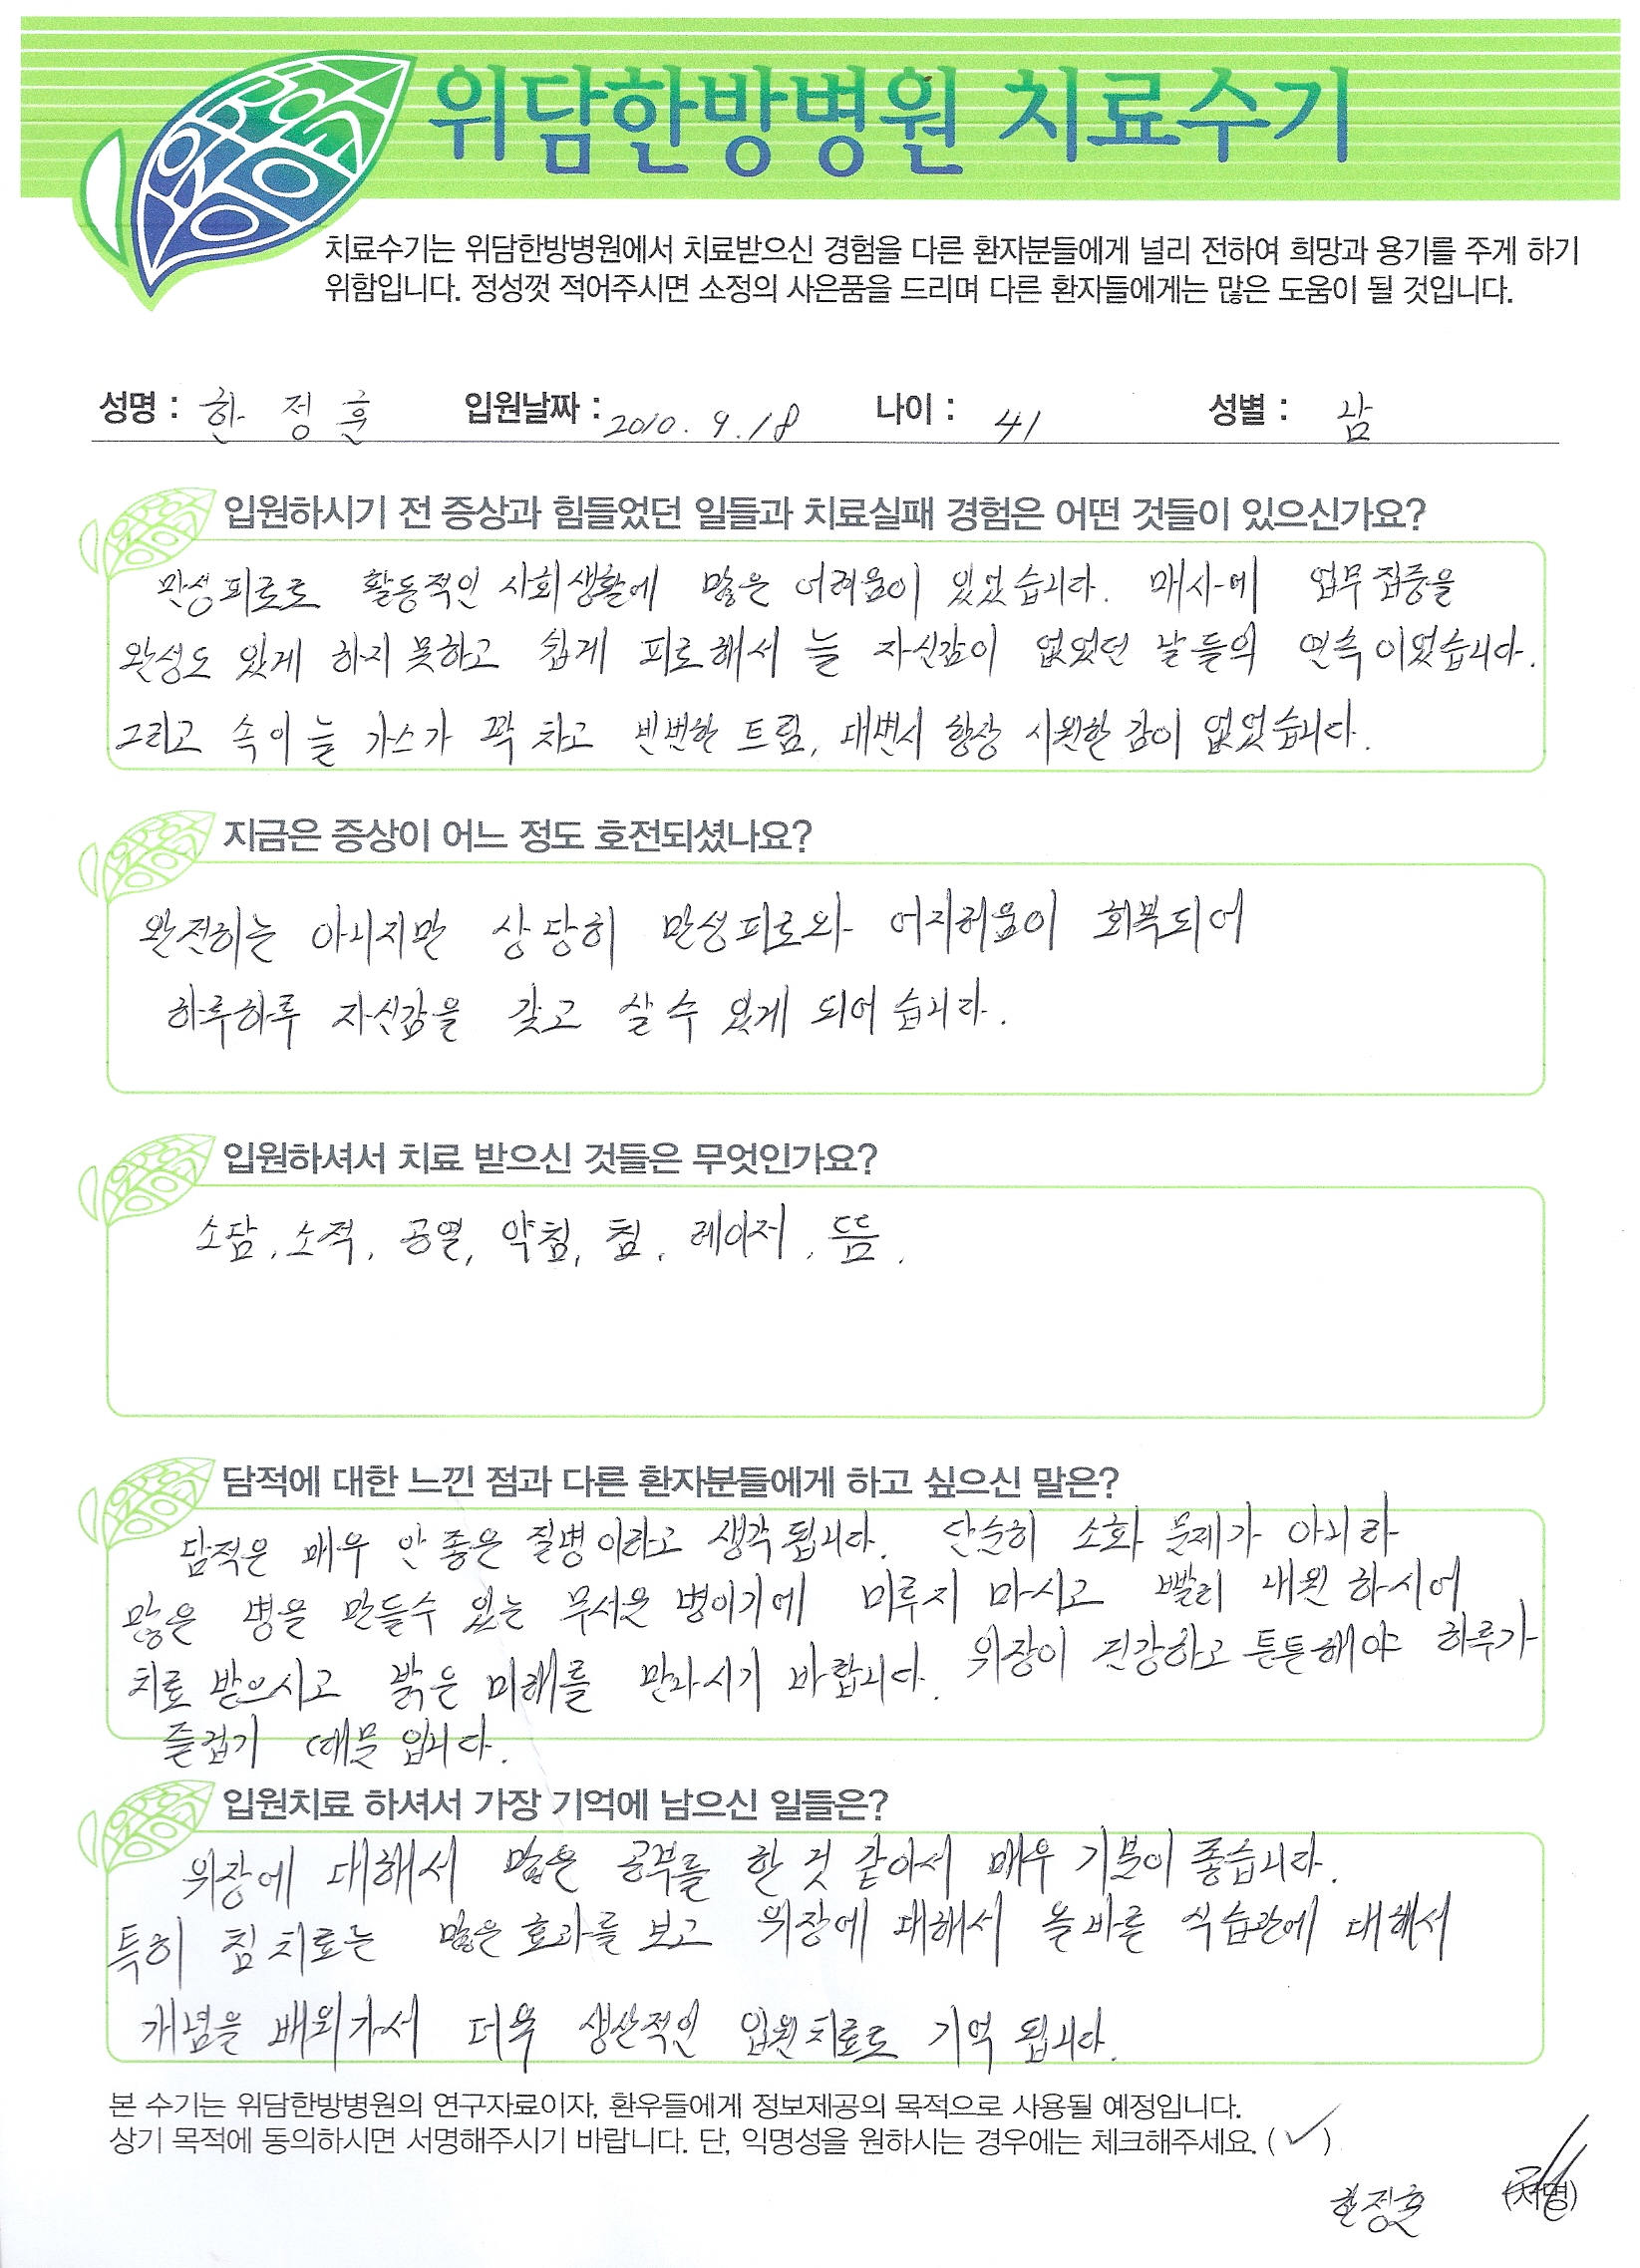 위담한방병원 치료수기
치료수기는 위담한방병원에서 치료받으신 경험을 다른 환자분들에게 널리 전하여 희망과 용기를 주게 하기
위함입니다. 정성껏 적어주시면 소정의 사은품을 드리며 다른 환자들에게는 많은 도움이 될 것입니다.
성명 : 한 정 훈 입원날짜 : 2010. 9. 18 나이 : 41 성별 : 남
입원하시기 전 증상과 힘들었던 일들과 치료실패 경험은 어떤 것들이 있으신가요?
만성피로로 활동적인 사회생활에 많은 어려움이 있었습니다. 매사에 업무집중을
완성도 있게 하지 못하고 쉽게 피로해서 늘 자신감이 없었던 날들의 연속이었습니다.
그리고 속이 늘 가스가 꽉 차고 빈번한 트림, 대변시 항상 시원한 감이 없었습니다.
지금은 증상이 어느 정도 호전되셨나요?
완전히는 아니지만 상당히 만성피로와 어지러움이 회복되어
하루하루 자신감을 갖고 살 수 있게 되어습니다.
입원하셔서 치료 받으신 것들은 무엇인가요?
소담, 소적, 공열, 약침, 침, 레이저, 뜸.
담적에 대한 느낀 점과 다른 환자분들에게 하고 싶으신 말은?
담적은 매우 안 좋은 질병이라고 생각됩니다. 단순히 소화 문제가 아니라
많은 병을 만들수 있는 무서운 병이기에 미루지 마시고 빨리 내원 하시어
치료 받으시고 밝은 미래를 만나시기 바랍니다. 위장이 건강하고 튼튼해야 하루가
즐겁기 때문입니다.
입원치료 하셔서 가장 기억에 남으신 일들은?
위장에 대해서 많은 공부를 한 것 같아서 매우 기분이 좋습니다.
특히 침 치료는 많은 효과를 보고 위장에 대해서 올바른 식습관에 대해서
개념을 배워가서 더욱 생산적인 입원치료로 기억 됩니다.
본 수기는 위담한방병원의 연구자료이자, 환우들에게 정보제공의 목적으로 사용될 예정입니다.
상기 목적에 동의하시면 서명해주시기 바랍니다. 단, 익명성을 원하시는 경우에는 체크해주세요. (✓)
한정훈 (서명)